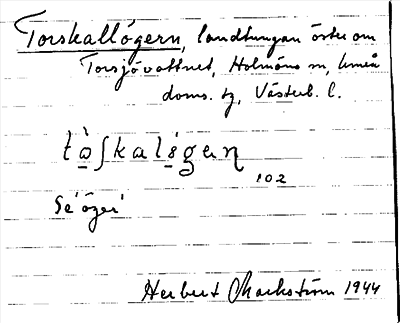 Torskallögern, landtungan öster om
Torsjövattnet, Holmöns sn, Umeå
doms. tg, Västerb. l.
102
Se öger
Herbert Markström 1944